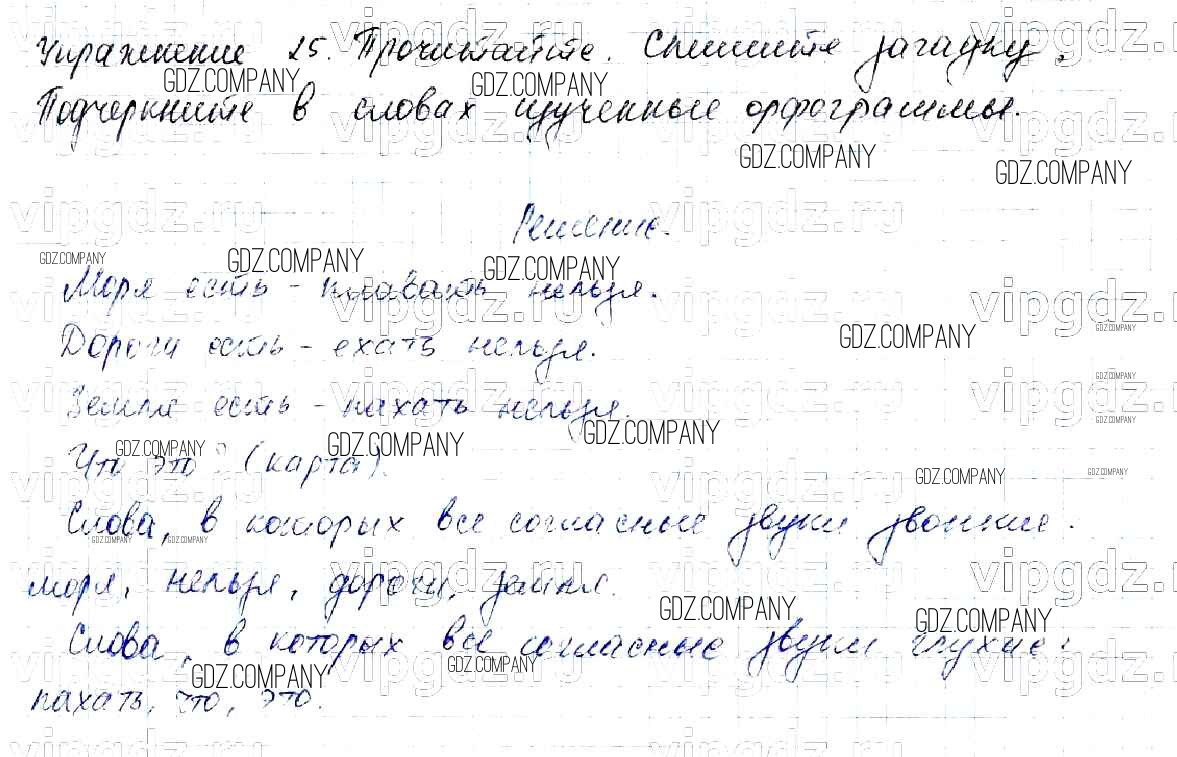 Упражнение 25. Прочитайте. Спишите загадку.
Подчеркните в словах изученные орфограммы.
Решение.
Моря есть - плавать нельзя.
Дороги есть - ехать нельзя.
Земля есть - пахать нельзя.
Что это? (карта).
Слова, в которых все согласные звуки звонкие.
моря, нельзя, дороги, земля.
Слова, в которых все согласные звуки глухие:
пахать, что, это.